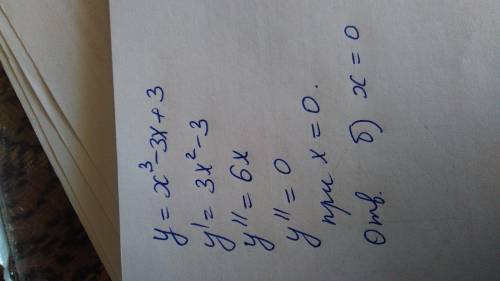 y = x³-3x+3
y' = 3x²-3
y'' = 6x
y'' = 0
при x = 0.
Отв. б) x = 0